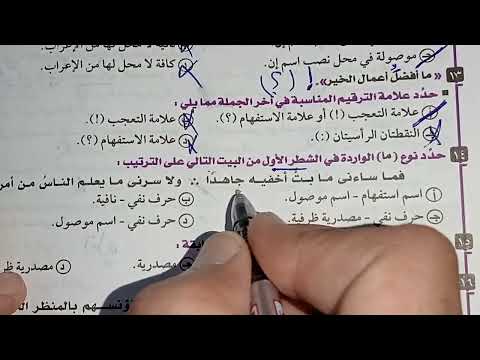 جـ موصولة في محل نصب اسم إن.
د كافة لا محل لها من الإعراب.
١٣ «ما أفضل أعمال الخير». ! (؟)
حدِّد علامة الترقيم المناسبة في آخر الجملة مما يلي :
أ علامة التعجب (!) أو علامة الاستفهام (؟).
ب علامة التعجب (!)
جـ النقطتان الرأسيتان (:).
د علامة الاستفهام (؟).
١٤ حدِّد نوع (ما) الواردة في الشطر الأول من البيت التالي على الترتيب :
فما ساءنى ما بتُّ أخفيه جاهدًا ∴ ولا سرنى ما يعلم الناسُ من أمر
أ اسم استفهام - اسم موصول.
ب حرف نفي - نافية.
جـ حرف نفي - مصدرية ظرفية.
د حرف نفي - اسم موصول.
١٥
جـ مصدرية.
د مصدرية ظر
١٦
بالمنظر